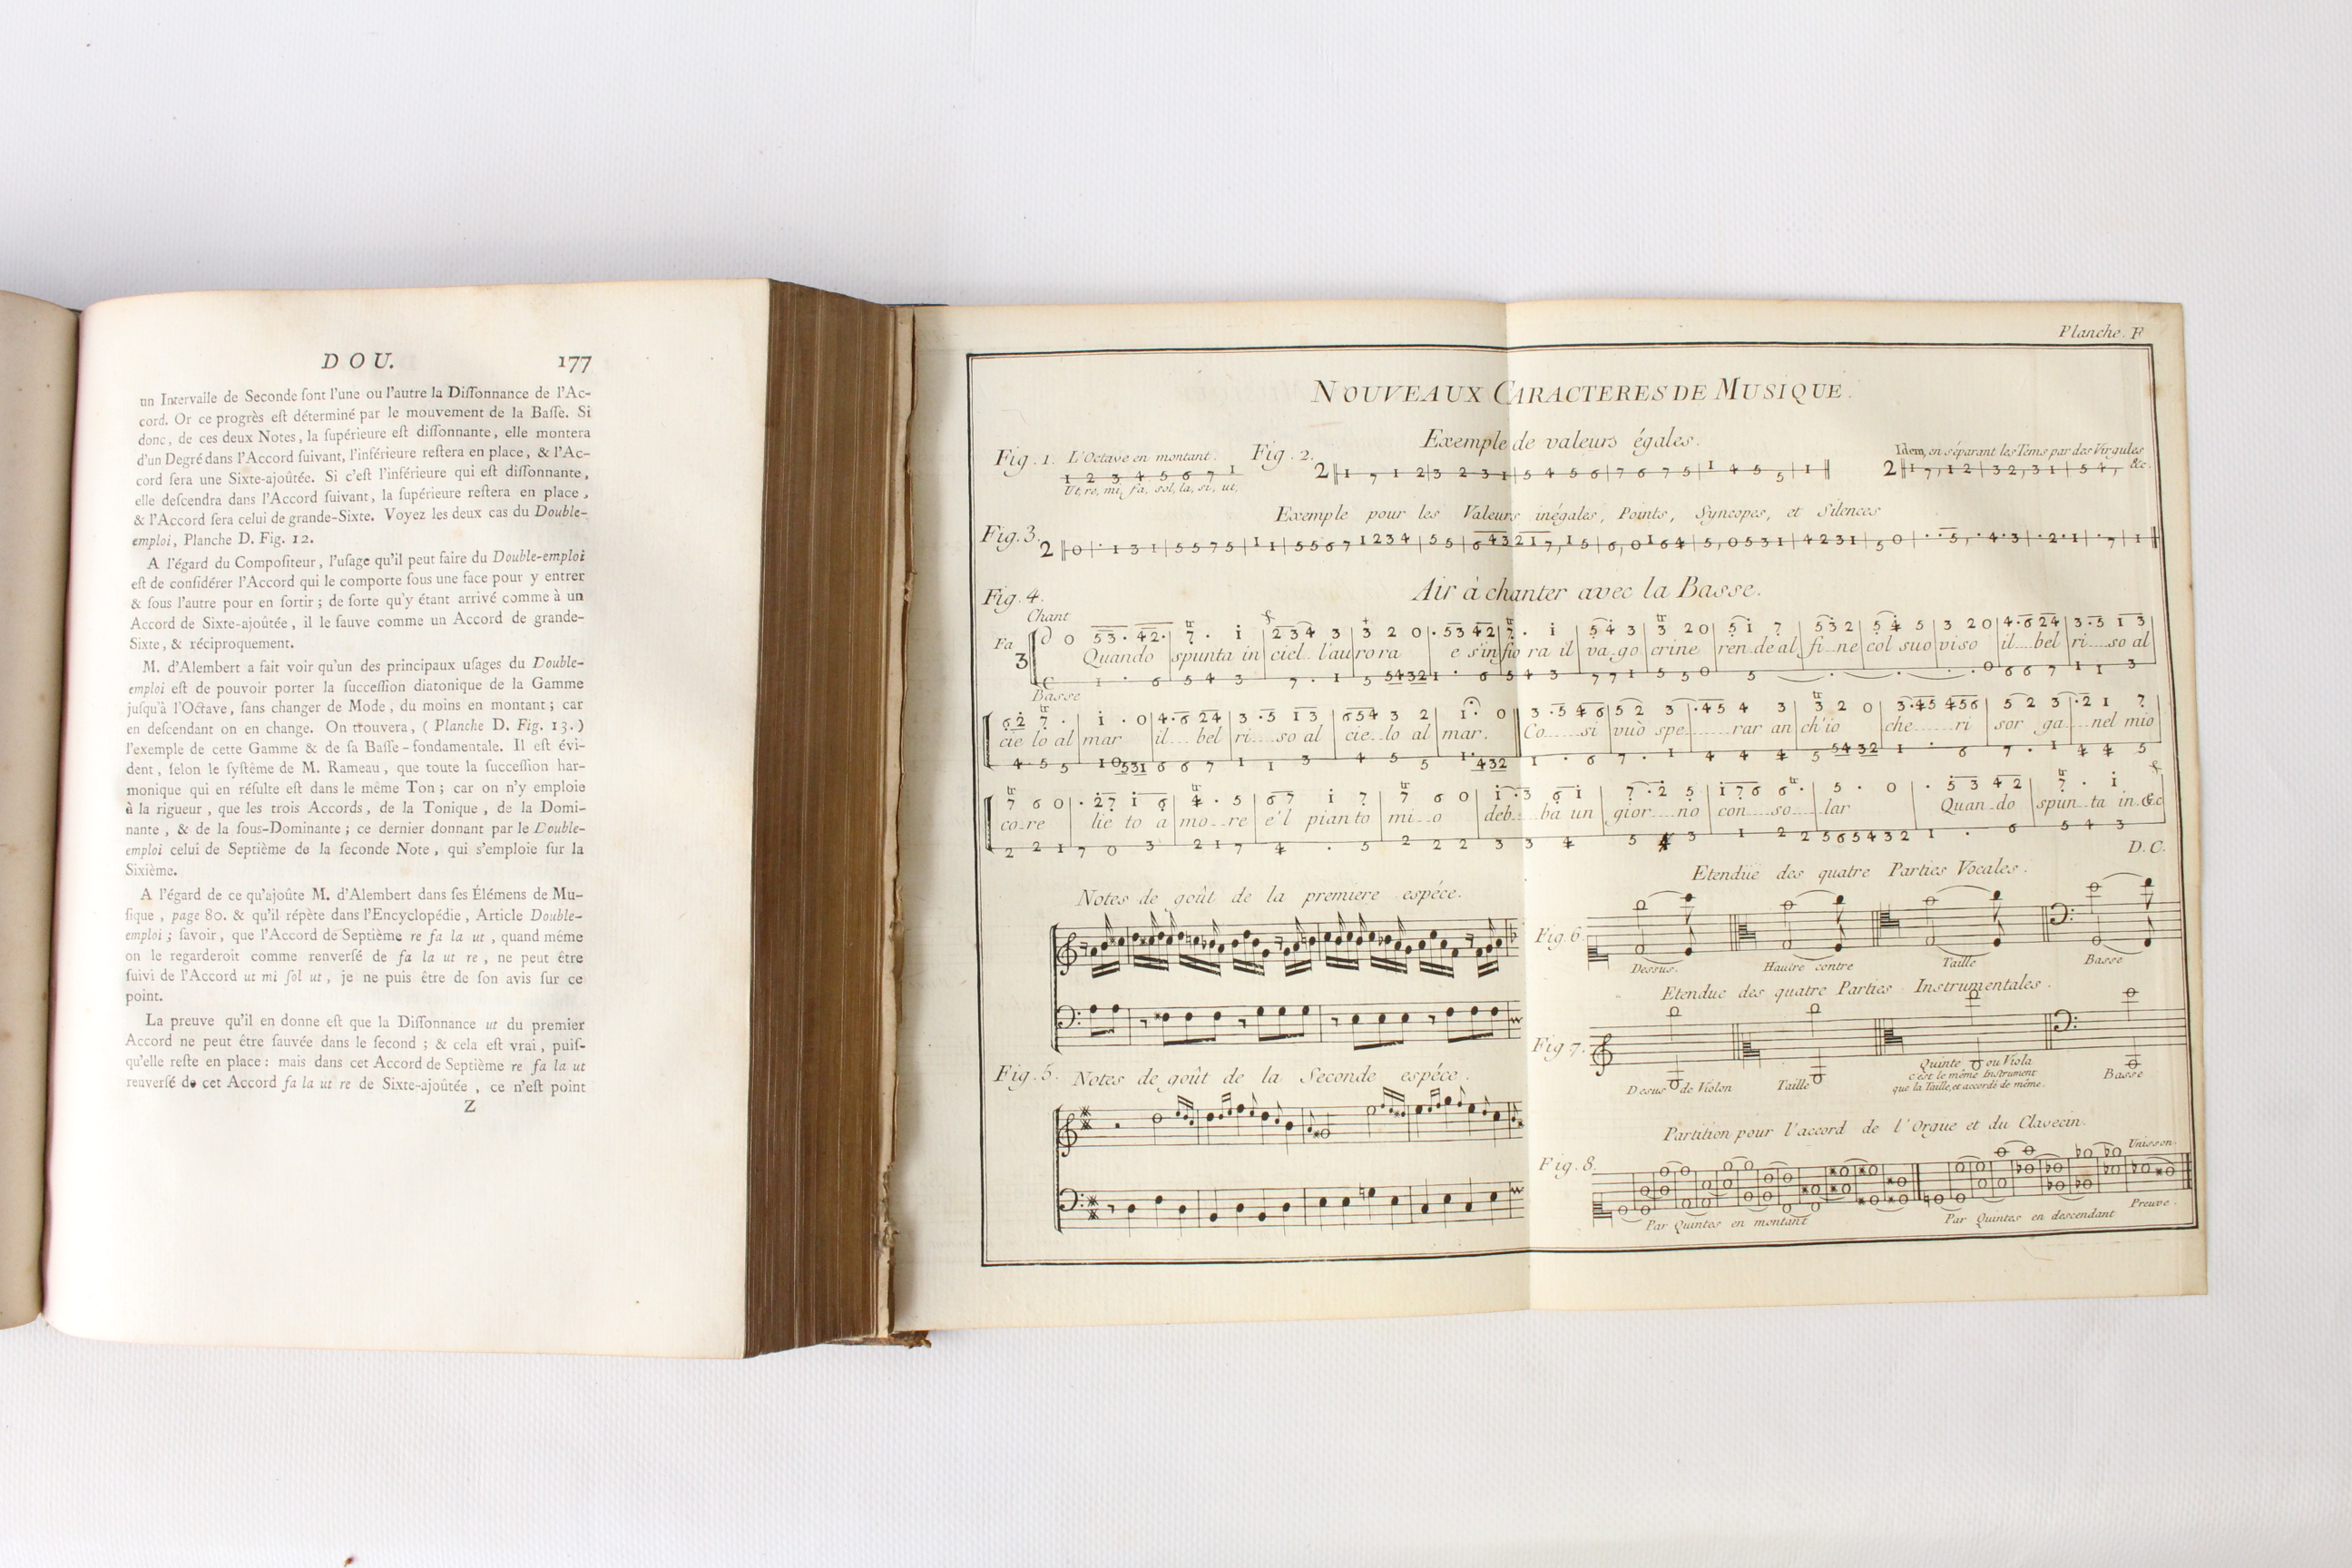 DOU. 177
un Intervalle de Seconde ſont l'une ou l'autre la Diſſonnance de l'Ac-
cord. Or ce progrès eſt déterminé par le mouvement de la Baſſe. Si
donc, de ces deux Notes, la ſupérieure eſt diſſonnante, elle montera
d'un Degré dans l'Accord ſuivant, l'inférieure reſtera en place, & l'Ac-
cord ſera une Sixte-ajoûtée. Si c'eſt l'inférieure qui eſt diſſonnante,
elle deſcendra dans l'Accord ſuivant, la ſupérieure reſtera en place,
& l'Accord ſera celui de grande-Sixte. Voyez les deux cas du Double-
emploi, Planche D. Fig. 12.
A l'égard du Compoſiteur, l'uſage qu'il peut faire du Double-emploi
eſt de conſidérer l'Accord qui le comporte ſous une face pour y entrer
& ſous l'autre pour en ſortir ; de ſorte qu'y étant arrivé comme à un
Accord de Sixte-ajoûtée, il le ſauve comme un Accord de grande-
Sixte, & réciproquement.
M. d'Alembert a fait voir qu'un des principaux uſages du Double-
emploi eſt de pouvoir porter la ſucceſſion diatonique de la Gamme
juſqu'à l'Octave, ſans changer de Mode, du moins en montant ; car
en deſcendant on en change. On trouvera, ( Planche D. Fig. 13. )
l'exemple de cette Gamme & de ſa Baſſe-fondamentale. Il eſt évi-
dent, ſelon le ſyſtême de M. Rameau, que toute la ſucceſſion har-
monique qui en réſulte eſt dans le même Ton ; car on n'y emploie
à la rigueur, que les trois Accords, de la Tonique, de la Domi-
nante, & de la ſous-Dominante ; ce dernier donnant par le Double-
emploi celui de Septième de la ſeconde Note, qui s'emploie ſur la
Sixième.
A l'égard de ce qu'ajoûte M. d'Alembert dans ſes Élémens de Mu-
ſique, page 80. & qu'il répète dans l'Encyclopédie, Article Double-
emploi ; ſavoir, que l'Accord de Septième re fa la ut, quand même
on le regarderoit comme renverſé de fa la ut re, ne peut être
ſuivi de l'Accord ut mi ſol ut, je ne puis être de ſon avis ſur ce
point.
La preuve qu'il en donne eſt que la Diſſonnance ut du premier
Accord ne peut être ſauvée dans le ſecond ; & cela eſt vrai, puiſ-
qu'elle reſte en place : mais dans cet Accord de Septième re fa la ut
renverſé de cet Accord fa la ut re de Sixte-ajoûtée, ce n'eſt point
Z
Planche. F
NOUVEAUX CARACTERES DE MUSIQUE.
Exemple de valeurs égales.
Fig. 1. L'Octave en montant. Fig. 2. Idem, en séparant les Tems par des Virgules
1 2 3 4 5 6 7 1
2 1 7 1 2 | 3 2 3 1 | 5 4 5 6 | 7 6 7 5 | 1 4 5 5 | 1
2 1 7, 1 2 | 3 2, 3 1 | 5 4, &c.
Ut, re, mi, fa, sol, la, si, ut,
Exemple pour les Valeurs inégales, Points, Syncopes, et Silences
Fig. 3. 2 0 | · 1 3 1 | 5 5 7 5 | 1 1 | 5 5 6 7 1 2 3 4 | 5 5 | 6 4 3 2 1 7, 1 5 | 6, 0 1 6 4 | 5, 0 5 3 1 | 4 2 3 1 | 5 0
Air à chanter avec la Basse.
Fig. 4.
Chant
Fa 3
Quando spunta in ciel l'aurora e s'infiora il vago crine rende al fine col suo viso il bel riso al
Basse
cielo al mar il bel riso al cielo al mar. Cosi vuò sperar anch'io che ri sorga nel mio
core lieto amore e'l pianto mio debba un giorno consolar Quando spunta in &c
D. C.
Notes de goût de la premiere espéce.
Fig. 5. Notes de goût de la Seconde espéce.
Etendüe des quatre Parties Vocales.
Fig. 6.
Dessus. Hautre contre Taille Basse
Etendue des quatre Parties Instrumentales.
Fig 7.
Desus de Violon Taille Quinte ou Viola Basse
c'est le même Instrument
que la Taille, et accordé de même.
Partition pour l'accord de l'Orgue et du Clavecin.
Fig. 8. Unisson.
Par Quintes en montant Par Quintes en descendant Preuve.